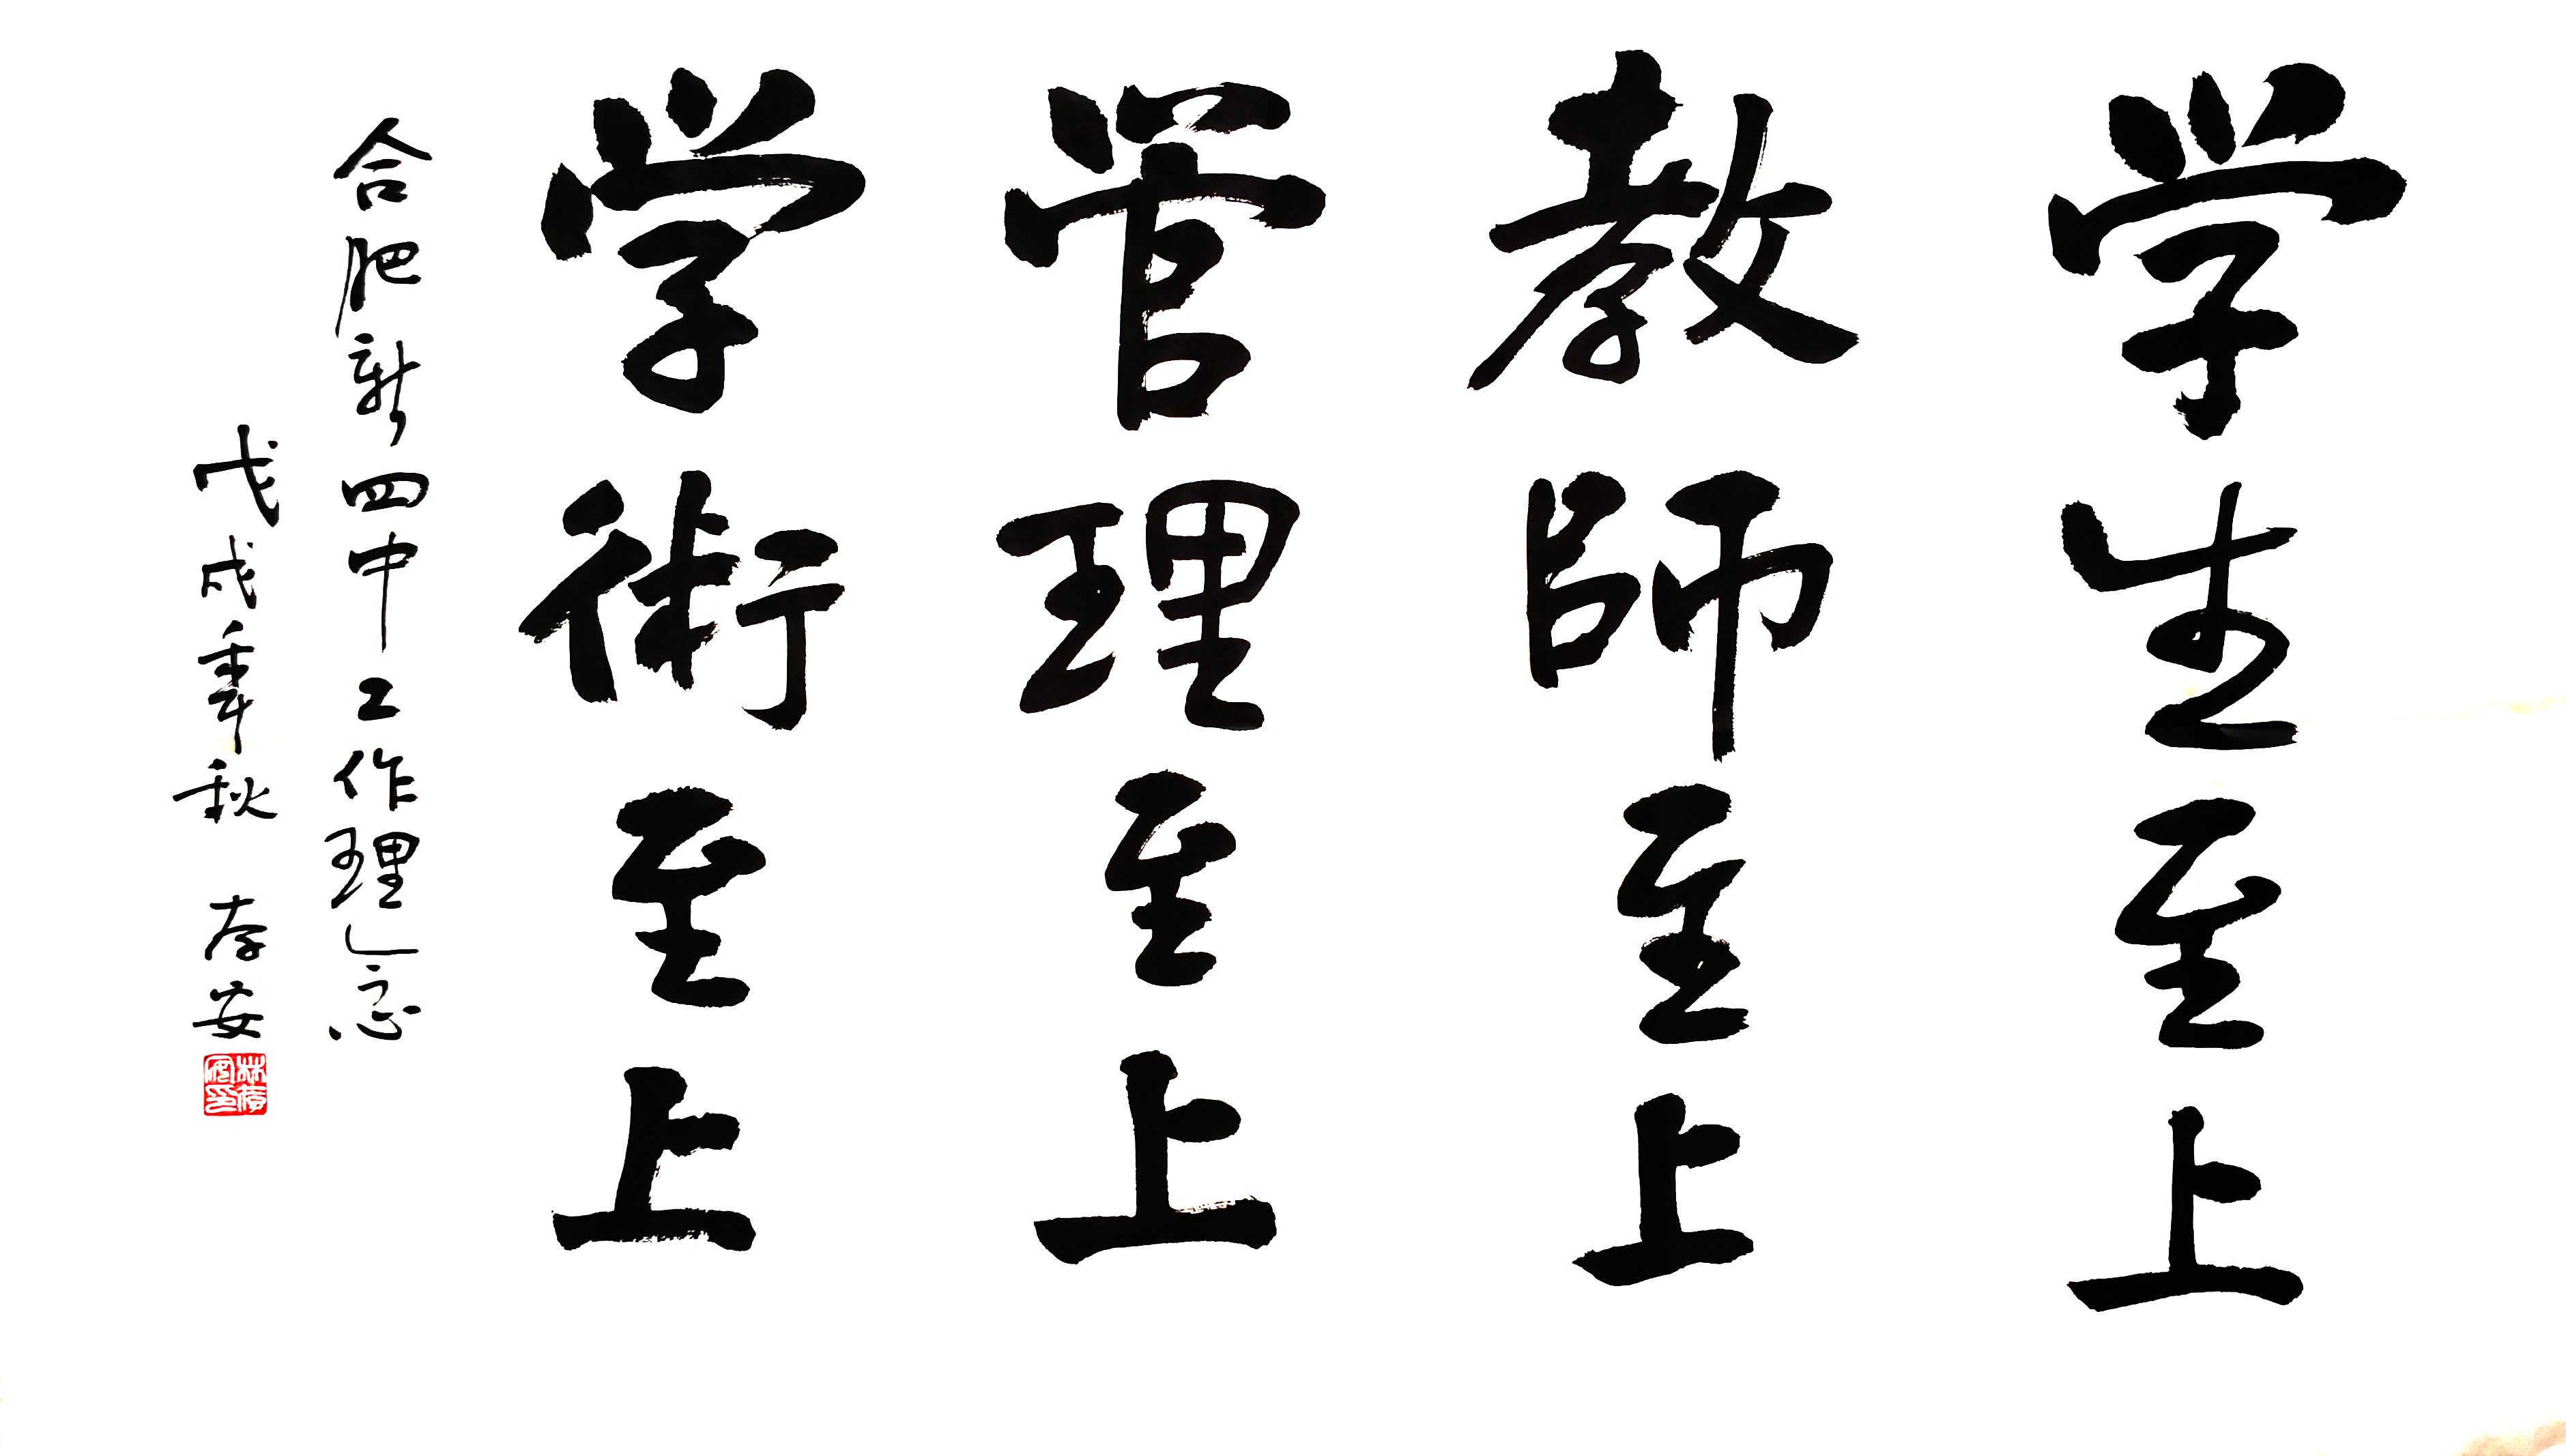 学生至上
教師至上
管理至上
学術至上
合肥新四中工作理念
戊戌年秋 存安
林存安印